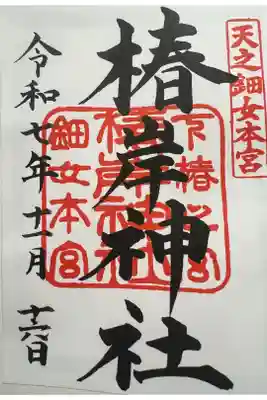 天之鈿女本宮
椿岸神社
椿岸神社
鈿女本宮
令和七年十一月十六日